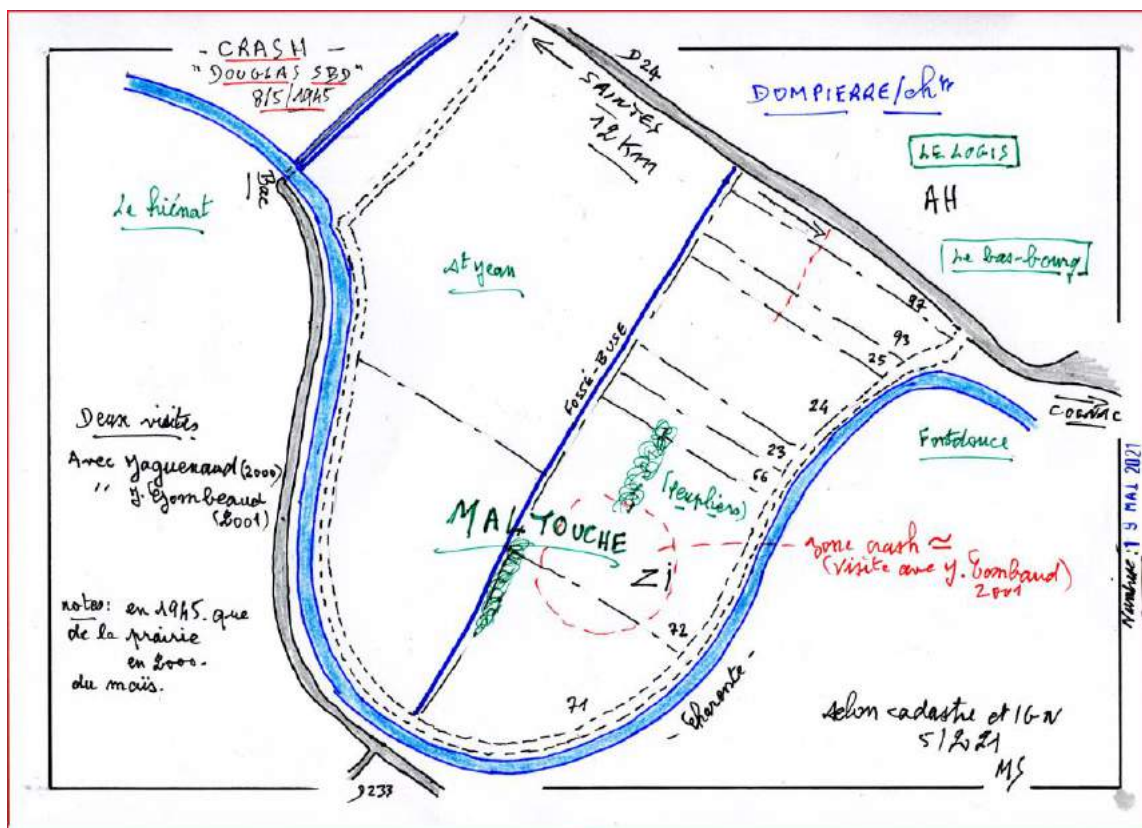 - CRASH -
"DOUGLAS SBD"
8/5/1945
D24
SAINTES
12 Km
DOMPIERRE/chte
LE LOGIS
AH
Le bas-bourg
Bac
St Jean
97
93
25
24
23
66
FOSSÉ-BUSE
COGNAC
Fontdouce
Deux visites
Avec Jaguenaud (2000)
" J. Gombeaud
(2001)
(peupliers)
MALTOUCHE
zone crash ≃
(visite avec J. Gombaud)
2001
Zi
72
71
Charente
notes: en 1945. que
de la prairie
en 2000.
du maïs.
selon cadastre et IGN
5/2021
MS
D233
Numérisé: 19 MAI 2021